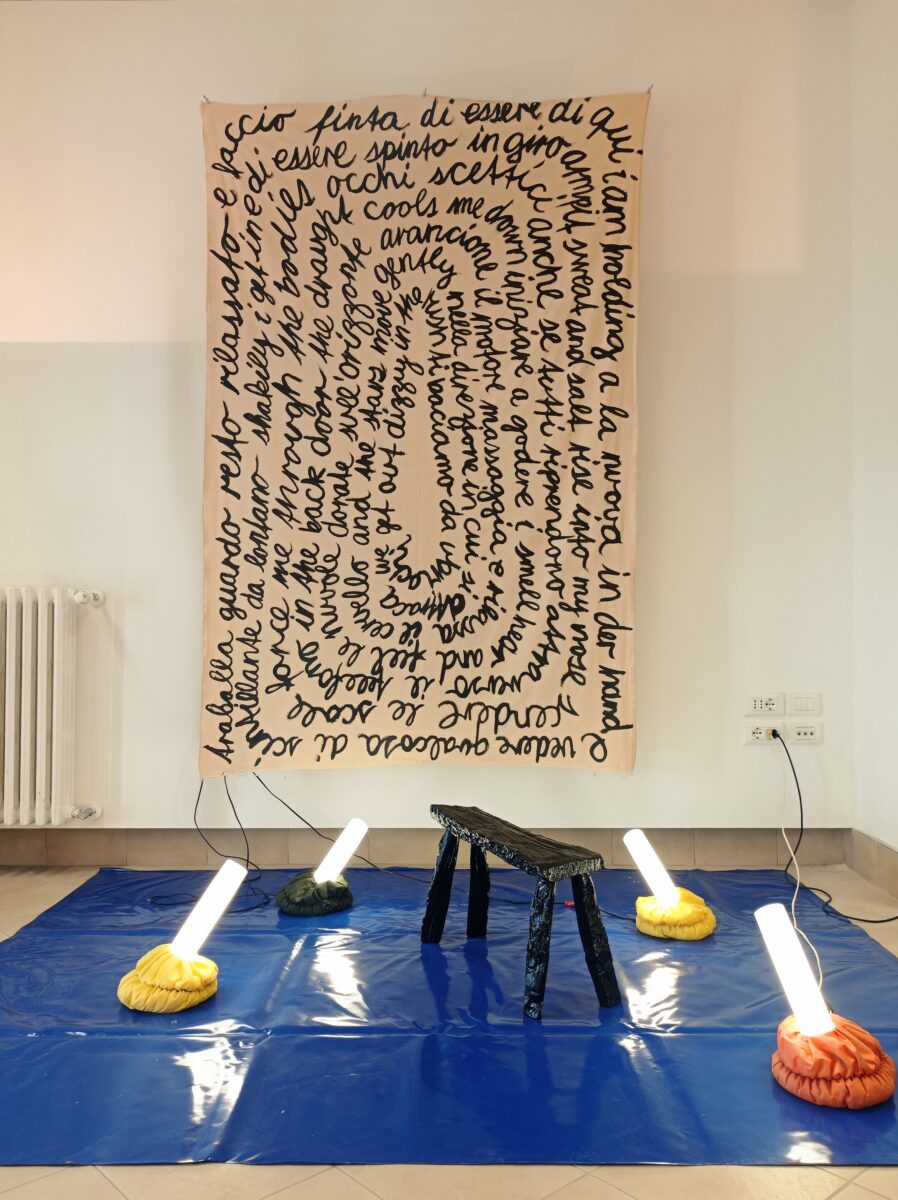 traballa quando resto relassato e faccio
finta di essere di qui
i am holding a la nuova in der hand
e vedere qualcosa di scin
tillante da lontano shakily i get in e di
essere spinto in giro
armpit sweat and salt rise into my nose
scendere le scale
force me through the bodies
occhi scettici
anche se tutti riprendono
verso il
in the back door the draught
cools me down
iniziare a godere i smell hear
and feel le
nuvole dorate sull'orizzonte
arancione
il motore massaggia e rilassa
il cervello
and the stars move gently
nella direzione in cui si
attracca
we get out dizzy in the
turn ti baciamo da ubriachi